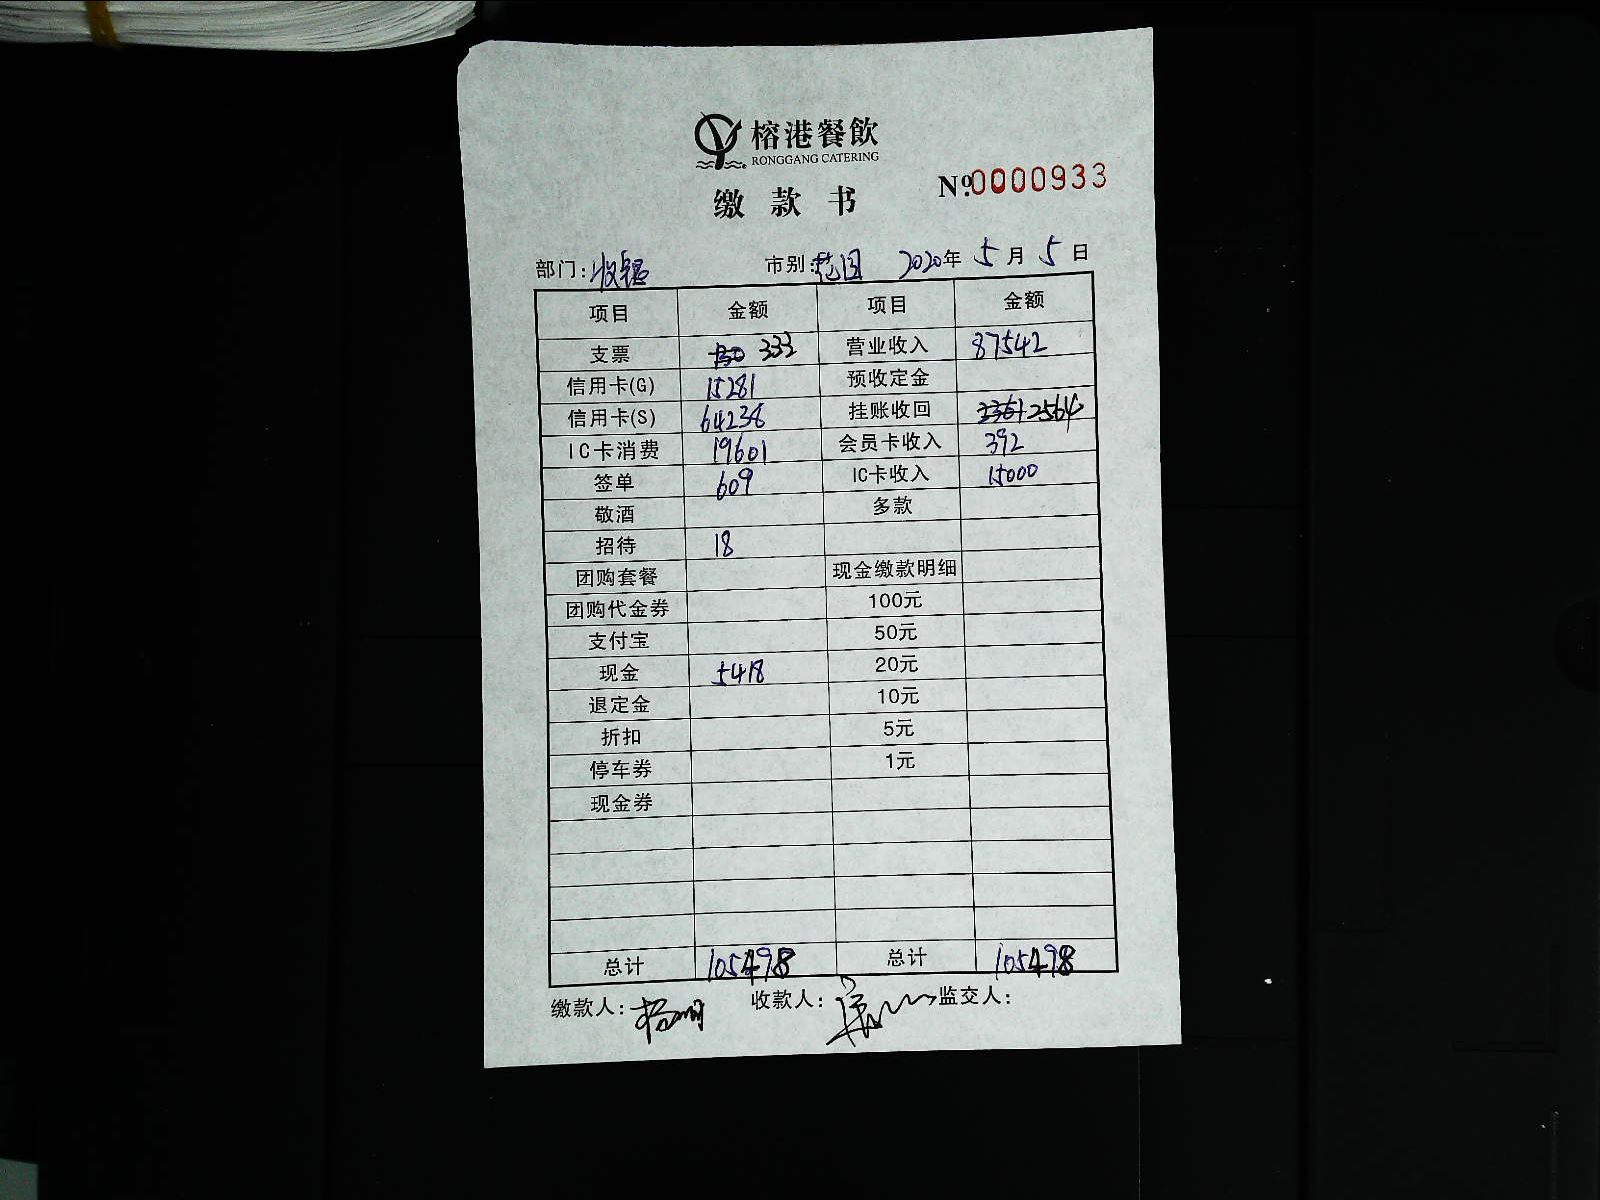 榕港餐飲
RONGGANG CATERING
缴款书 №0000933
部门:收银 市别:范围 2020年5月5日
项目 金额 项目 金额
支票 333 营业收入 87542
信用卡(G) 15281 预收定金
信用卡(S) 64238 挂账收回 2564
IC卡消费 19601 会员卡收入 392
签单 609 IC卡收入 15000
敬酒 多款
招待 18
团购套餐 现金缴款明细
团购代金券 100元
支付宝 50元
现金 5418 20元
退定金 10元
折扣 5元
停车券 1元
现金券
总计 105498 总计 105498
缴款人: 收款人: 监交人: